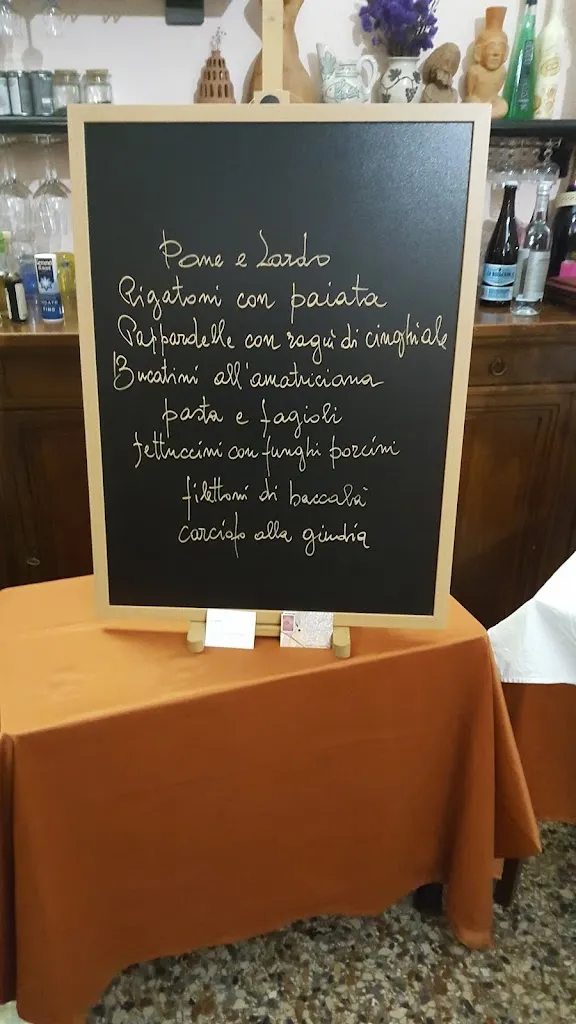 Pane e Lardo
Rigatoni con paiata
Pappardelle con ragù di cinghiale
Bucatini all'amatriciana
pasta e fagioli
fettuccini con funghi porcini
filettoni di baccalà
carciofo alla giudia